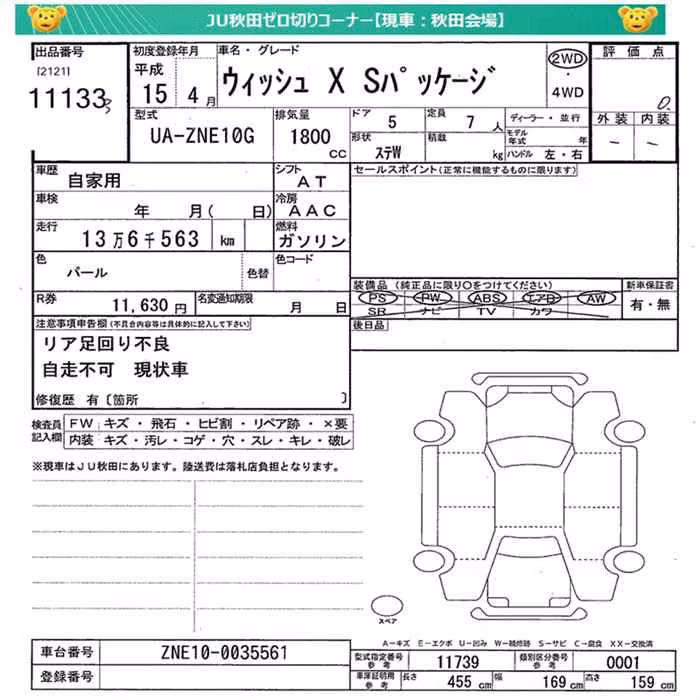 JU秋田ゼロ切りコーナー【現車：秋田会場】
出品番号
[2121]
11133
初度登録年月
平成
15 4月
車名・グレード
ウィッシュ X Sパッケージ
2WD
・
4WD
評価点
0
外装 内装
－ －
型式
UA-ZNE10G
排気量
1800
CC
ドア
5
定員
7人
形状
ステW
積載
kg
ディーラー・並行
モデル年式 年
ハンドル 左・右
車歴
自家用
シフト
AT
車検
年 月( 日)
冷房
AAC
走行
13万6千563 km
燃料
ガソリン
色
パール
色替
色コード
R券
11,630円
名変通知期限
月 日
セールスポイント(正常に機能するものに限ります)
装備品 (純正品に限り○をつけてください)
PS PW ABS エアB AW
SR ナビ TV カワ
新車保証書
有・無
後日品
注意事項申告欄(不具合内容等は具体的に記入して下さい)
リア足回り不良
自走不可 現状車
修復歴 有〔箇所 〕
検査員記入欄
FW キズ・飛石・ヒビ割・リペア跡・×要
内装 キズ・汚レ・コゲ・穴・スレ・キレ・破レ
※現車はJU秋田にあります。陸送費は落札店負担となります。
スペア
A－キズ E－エクボ U－凹み W－補修跡 S－サビ C－腐食 XX－交換済
車台番号
ZNE10-0035561
登録番号
型式指定番号
参考
11739
類別区分番号
参考
0001
車庫証明用
参考
長さ
455 cm
幅
169 cm
高さ
159 cm